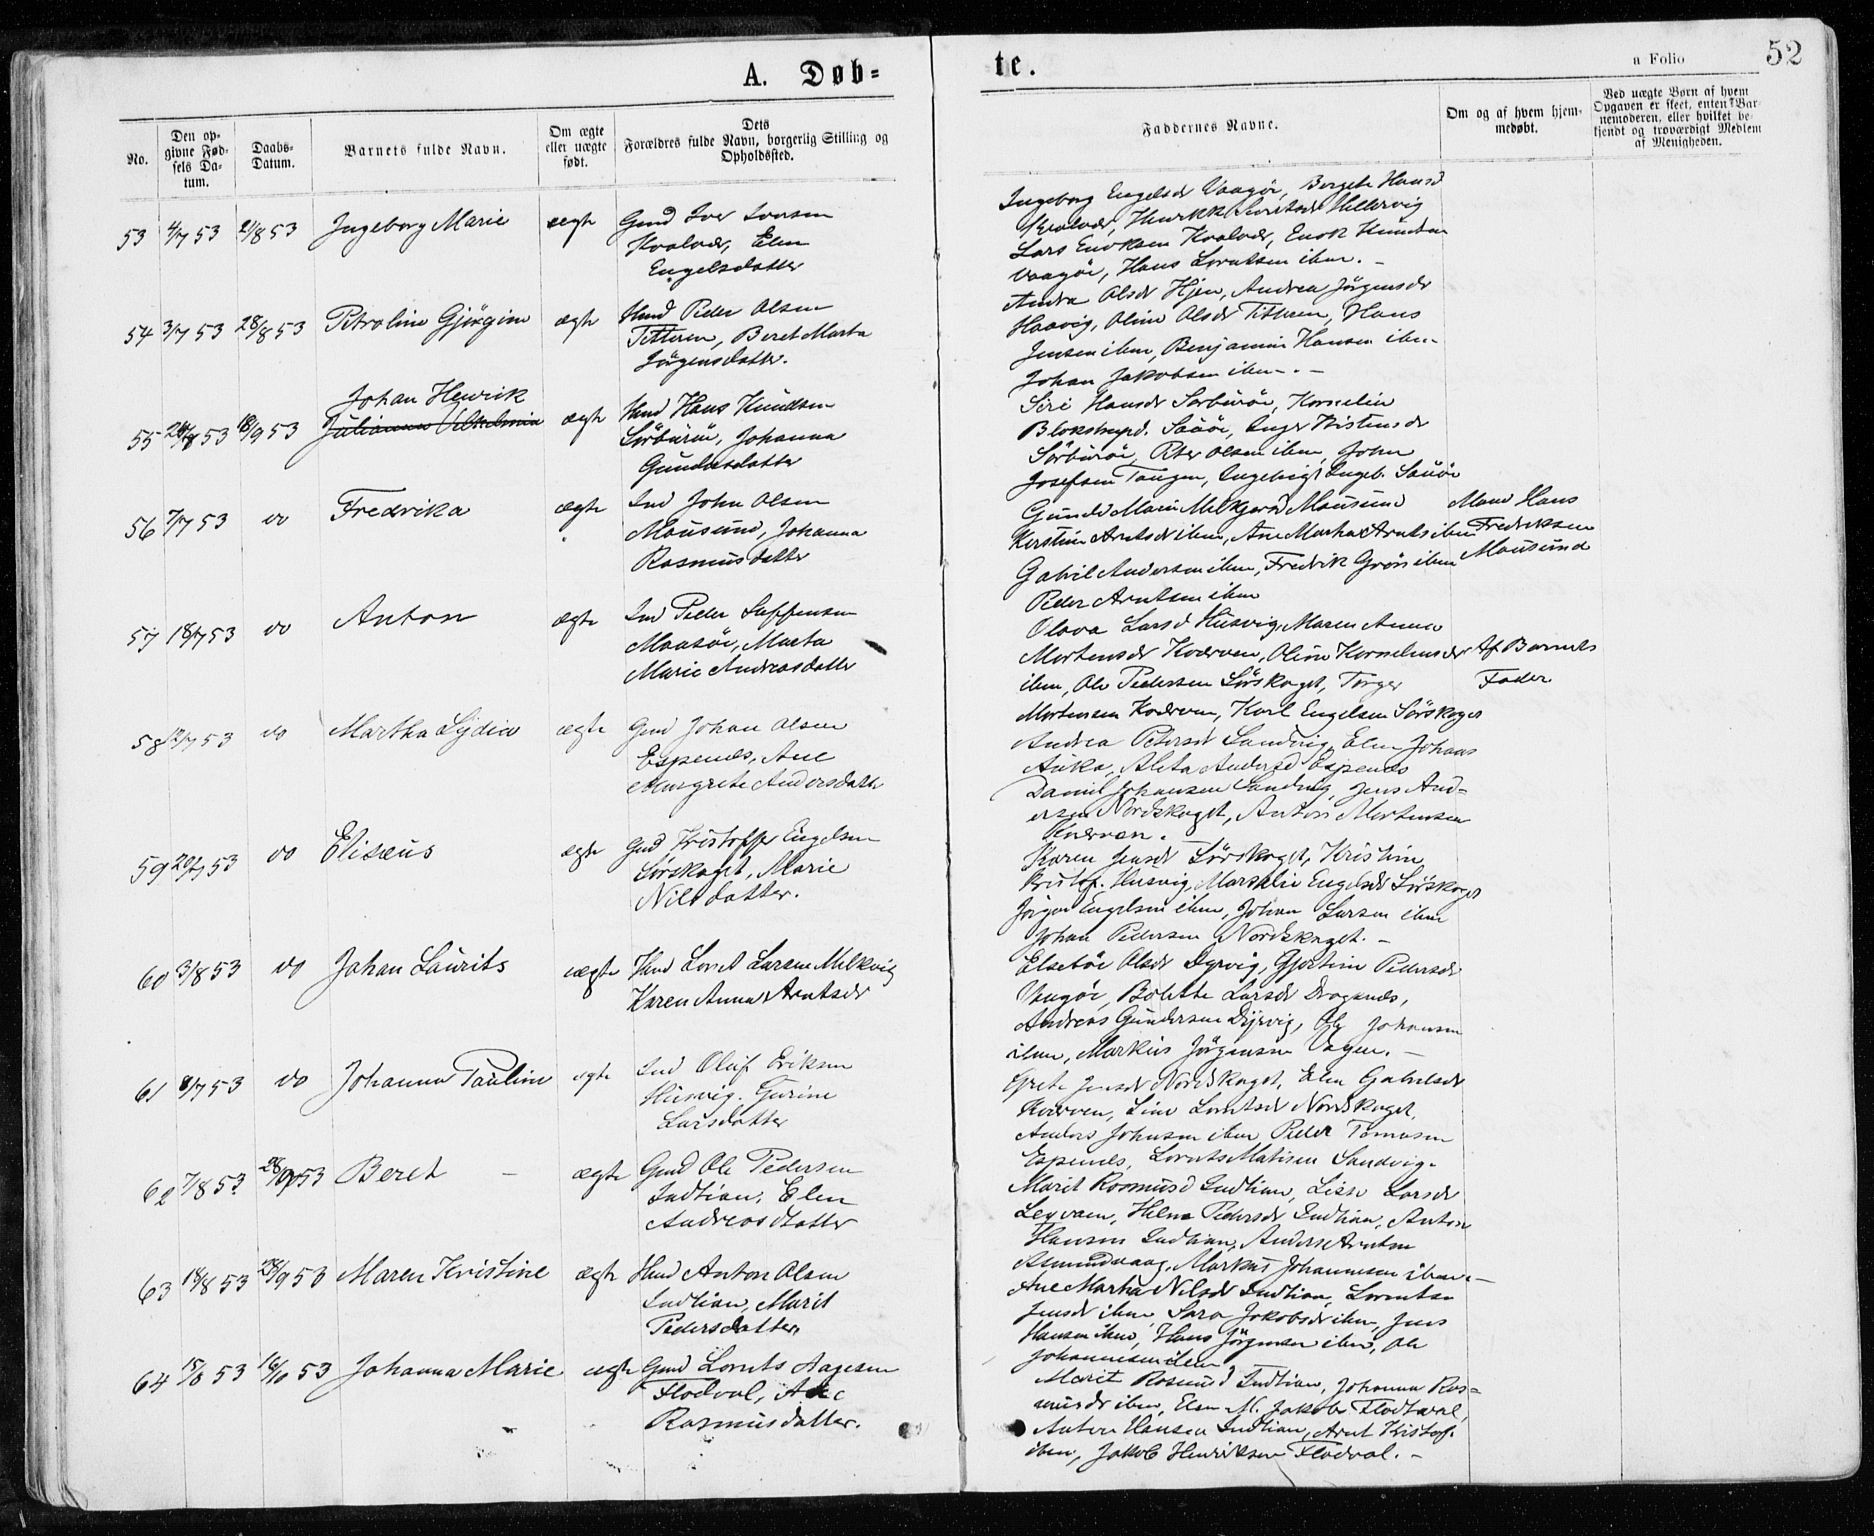 A. Døb=
te.
a Folio
52
No.
Den op-
givne Fød-
sels Da-
tum.
Daabs-
Datum.
Barnets fulde Navn.
Om ægte
eller uægte
født.
Dets
Forældres fulde Navn, borgerlig Stilling og
Opholdssted.
Faddernes Navne.
Om og af hvem hjem-
medøbt.
Ved uægte Børn af hvem
Opgaven er skeet, enten Bar-
nemoderen, eller hvilket be-
kjendt og troværdigt Medlem
af Menigheden.
53 4/7 53 21/8 53 Ingeborg Marie ægte Gmd Iver Iversen
Kvalvær, Elen
Engelsdatter
Ingeborg Engelsdr Vaagöi, Bergete Hansd
Kvalvær, Lorntsdr Hellesvig
Lars Enoksen Kvalvær, Enok Knudsen
Vaagöi, Hans Lorntsen ibm. -
54 3/7 53 28/8 53 Petroline Gjörgine ægte Hmd Peder Olsen
Titteren, Beret Marta
Jörgensdatter.
Andrea Olsdr Hjen, Andrea Jörgensdr
Haavig, Oline Olsdr Titteren, Hans
Jensen ibm, Benjamin Hansen ibm
Johan Jakobsen ibm. -
55 18/9 53 Johan Henrik
Julianna Vilhelmine ægte Hmd Hans Knudsen
Sörburöi, Johanna
Gundersdatter
Siri Hansdr Sorburöi, Kornelia
Sauöi, Inger Kristensdr
Sörburöi, Peter Olsen ibm, John
Josefsen Tangen, Ingebrigt Ingeb. Sauöi
56 7/7 53 do Fredrika ægte Ind John Olsen
Mausund, Johanna
Rasmusdatter
Marie Mausund
Kerstine Arntsdr ibm, Ane Martha Arnts ibm
Gabriel Andersen ibm, Fredrik Grön ibm
Peder Arntsen ibm
Mand Hans
Fredriksen
Mausund
57 18/7 53 do Anton ægte Ind Peder Steffensen
Maasöi, Marta
Marie Andreasdatter
Olava Larsd Husvig, Maren Anna
Mortensdr Kværven, Oline Kornelius dr
ibm, Ole Pedersen Sörskaget, Torger
Mortensen Kværven, Karl Engelsen Sörskaget
Af Barnets
Fader
58 12/7 53 do Martha Lydia ægte Gmd Johan Olsen
Espenes, Ane
Margrete Andersdatter
Andrea Petersdr Sandvig, Elen Johans
Anka, Aleta Andersd Espenes
Daniel Johansen Sandvig, Jens And=
ersen Nordskaget, Anton Mortensen
Kværven.
59 20/7 53 do Elisæus ægte Gmd Kristoffer Engelsen
Sörskaget, Marie
Nilsdatter.
Karen Jensdr Sörskaget, Kristine
Kristof. Husvig, Engelsdr Sörskaget
Jörgen Engelsen ibm, Johan Larsen ibm
Johan Pedersen Nordskaget. -
60 3/8 53 do Johan Laurits uægte Hmd Lornt Larsen Melkvig
Karen Anna Arntsdr
Elseböe Olsdr Dyrvig, Gjertine Pedersdr
Vaagöi, Bolette Larsdr Dragsnæs,
Andreas Gundersen Dyrvig, Ole Johansen
ibm, Markus Jörgensen Vagen. -
61 8/7 53 do Johanna Pauline ægte Ind Oluf Eriksen
Husvig. Gurine
Larsdatter
Grete Jensdr Nordskaget, Elen Gabrielsdr
Kværven, Line Lorntsdr Nordskaget,
Anders Johnsen ibm, Peder Tomasen
Espenes, Lornts Matisen Sandvig.
62 7/8 53 28/9 53 Beret - ægte Gmd Ole Pedersen
Indtian, Elen
Andreasdatter
Marit Rasmusd Indtian, Lisa Larsdr
Helena Pedersdr Indtian, Anton
Hansen Indtian, Anders Arntsen
Asmundvaag, Markus Johannesen ibm. -
63 18/8 53 28/9 53 Maren Kristine ægte Hmd Anton Olsen
Indtian, Marit
Pedersdatter
Ane Martha Nilsdr Indtian, Lorentse
Jensdr ibm, Sara Jakobsdr ibm, Jens
Hansen ibm, Hans Jörgensen ibm, Ole
Johannesen ibm
64 15/8 53 16/10 53 Johanna Marie ægte Gmd Lornts Aagesen
Flodval, Ane
Rasmusdatter.
Marit Rasmusd Indtian, Johanna Ras=
musdr ibm, Elen M. Jakobs Flodval,
Anton Hansen Indtian, Arnt Kristof.
ibm, Jakob Henriksen Flodval. -